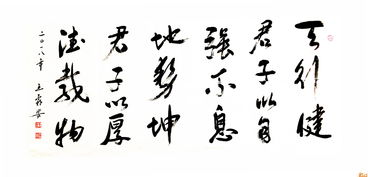 天行健
君子以自
强不息
地势坤
君子以厚
德载物
二〇一八年